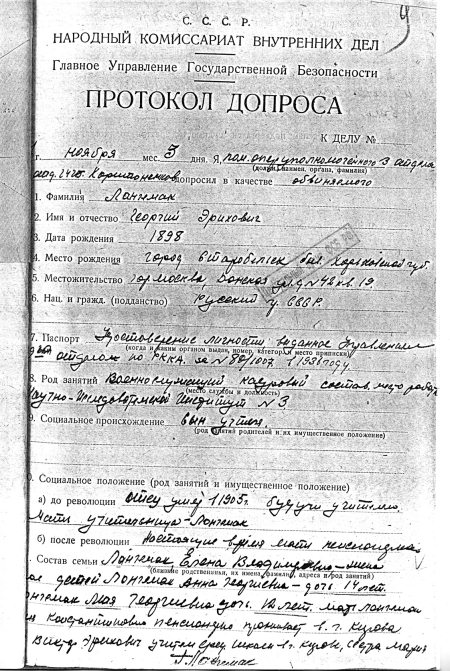 9
С. С. С. Р.
НАРОДНЫЙ КОМИССАРИАТ ВНУТРЕННИХ ДЕЛ
Главное Управление Государственной Безопасности
ПРОТОКОЛ ДОПРОСА
К ДЕЛУ №
г. ноября мес. 5 дня. Я, пом. оперуполномоченного 3 отдела
(должн., наимен. органа, фамилия)
допросил в качестве обвиняемого
1. Фамилия Лангемак
2. Имя и отчество Георгий Эрихович
3. Дата рождения 1898
4. Место рождения город Старобельск быв. Харьковской губ.
5. Местожительство гор. Москва, Донская ул. д № 42 кв. 19.
6. Нац. и гражд. (подданство) Русский гр. СССР.
7. Паспорт Удостоверение личности выданное Управлением
(когда и каким органом выдан, номер, категор. и место приписки)
отделом по РККА. за № 1936 году.
8. Род занятий Военнослужащий кадровый состав. место работы
(место службы и должность)
Научно-Исследовательский Институт № 3
9. Социальное происхождение сын учит.
(род занятий родителей и их имущественное положение)
0. Социальное положение (род занятий и имущественное положение)
а) до революции отец умер 1905 г. будучи учителем.
Мать учительница - Лангемак
б) после революции настоящее время мать пенсионерка
. Состав семьи Лангемак Елена Владимировна - жена
(ближние родственники, их имена, фамилии, адреса и род занятий)
детей Лангемак Анна Георгиевна - дочь 14 лет.
Лангемак Майя Георгиевна дочь. 12 лет. мать Лангемак
Константиновна пенсионерка проживает в г.
Эрихович учитель сред. школы в г. сестра Мария
Лангемак